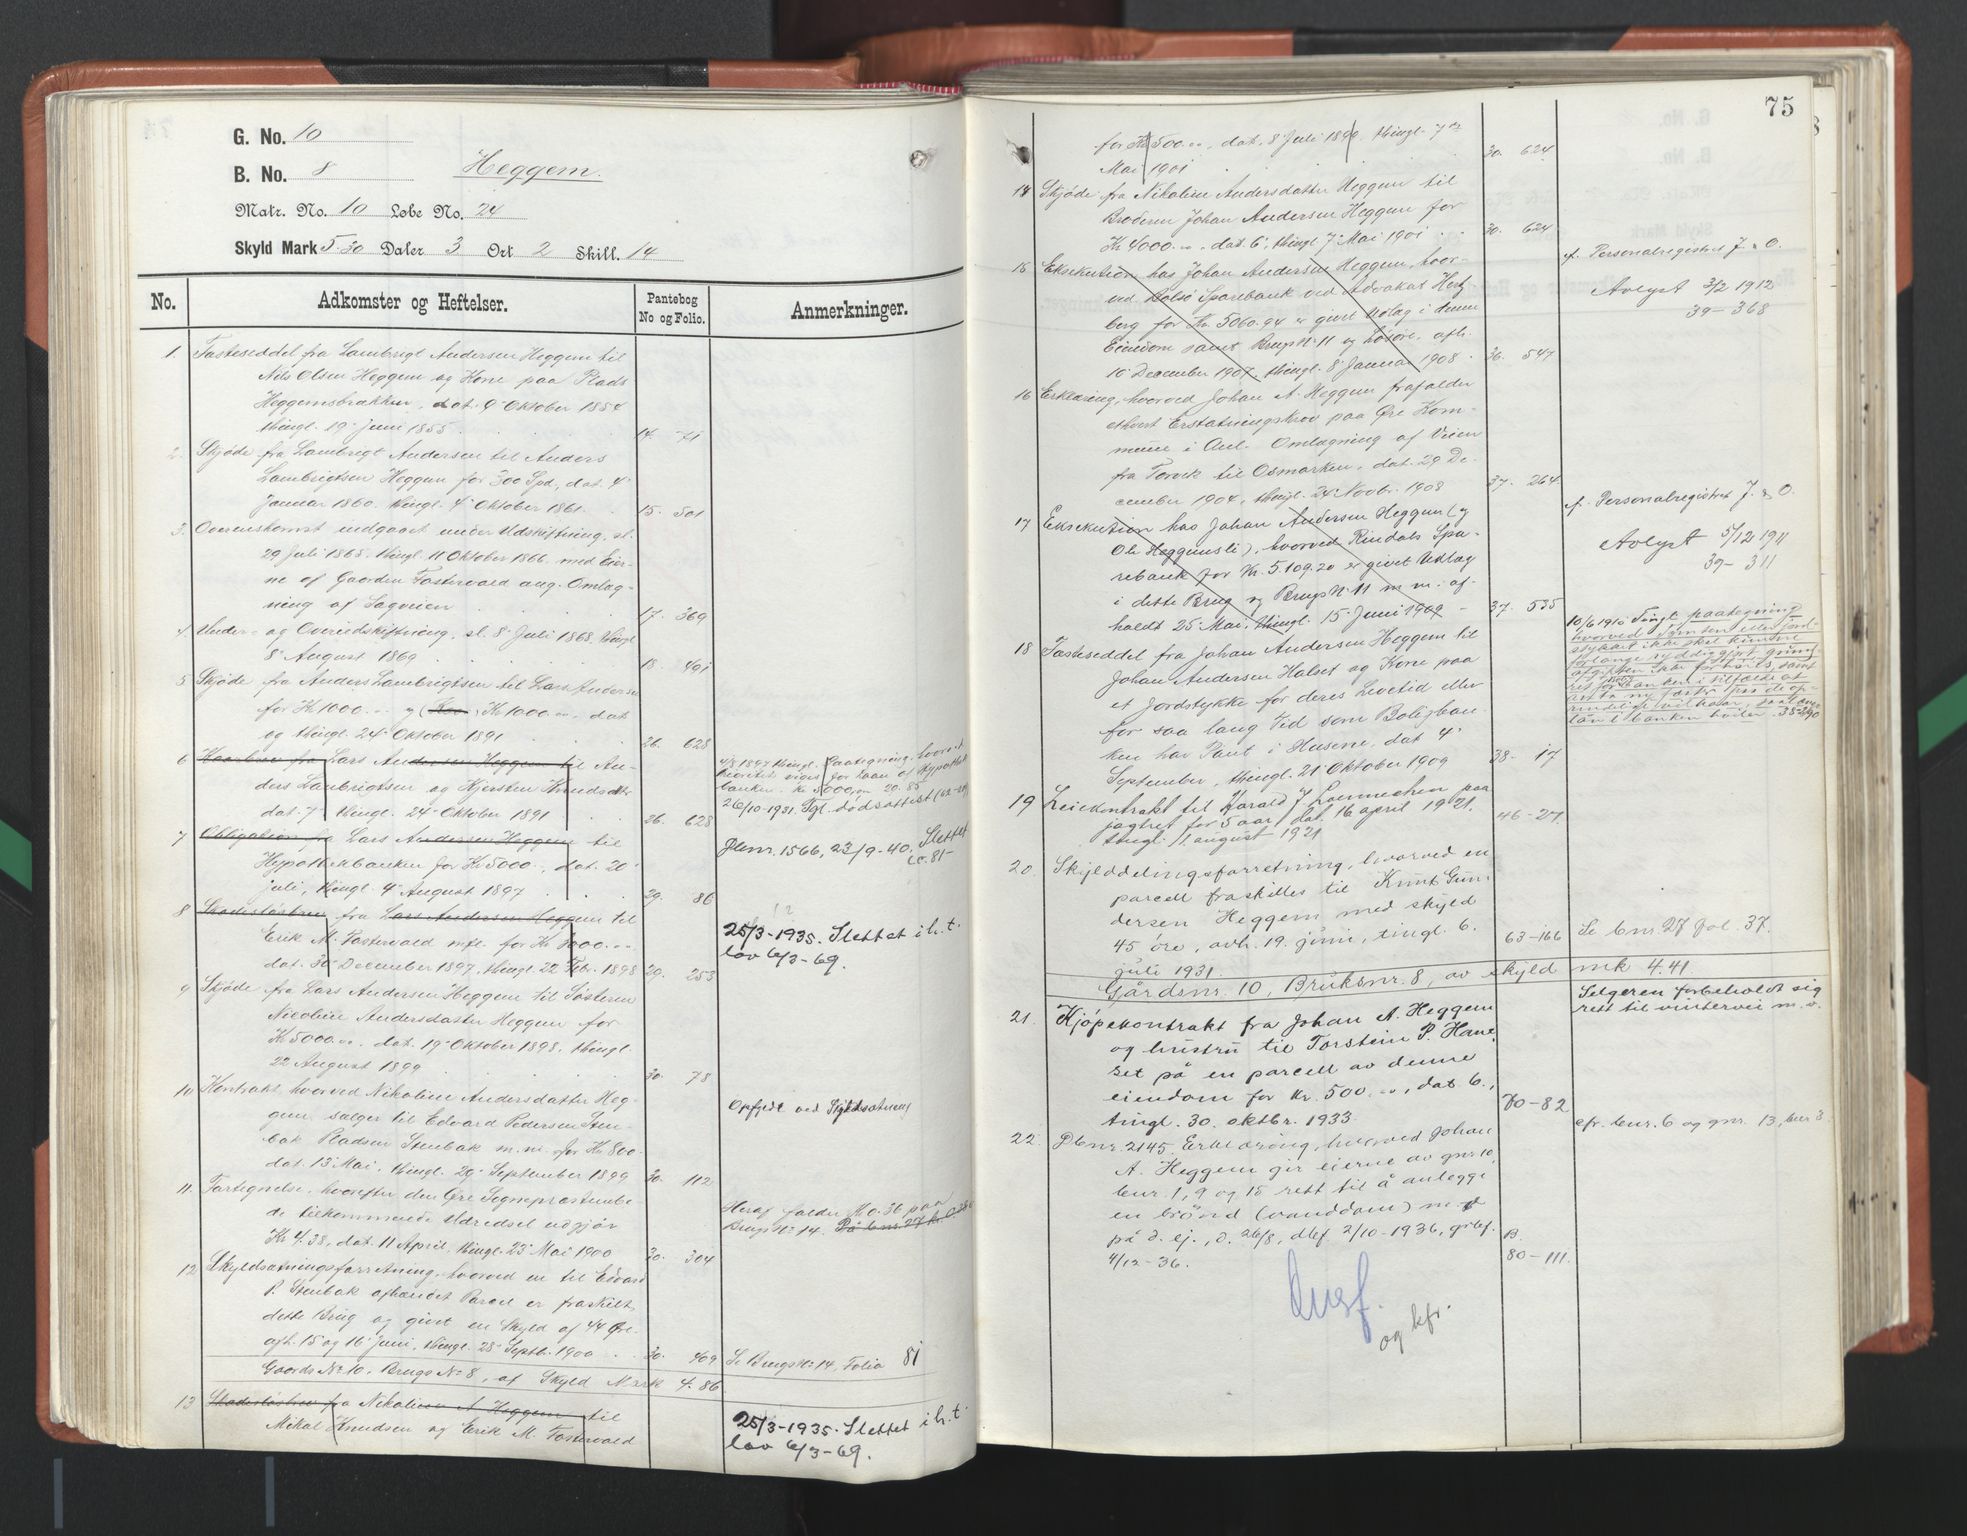 G. No. 10
B. No. 8 Heggem.
Matr. No. 10 Løbe No. 24
Skyld Mark 5.30 Daler 3 Ort 2 Skill. 14
No. Adkomster og Heftelser. Pantebog No og Folio. Anmerkninger.
1. Fæsteseddel fra Lambrigt Andersen Heggem til
Nils Olsen Heggem og Kone paa Plads
Heggemsbrækken, dat. 9 Oktober 1854
thingl. 19 Juni 1855. 14. 71
2. Skjøde fra Lambrigt Andersen til Anders
Lambrigtsen Heggem for 300 Spd., dat. 4
Januar 1860. thingl. 4 Oktober 1861. 15. 501
3. Overenskomst indgaaet under Udskiftning, sl.
29 Juli 1865. thingl. 11 Oktober 1866. med Eier-
ne af Gaarden Fostervold ang. Omlæg-
ning af Sagveien 17. 369
4 Under- og Overudskiftning, sl. 8 Juli 1868, thingl
8 August 1869 18. 401
5 Skjøde fra Anders Lambrigtsen til Lars Andersen
for Kr 1000.00 og Kr 1000.00, dat.
og thingl. 24 Oktober 1891 26. 628
6 Kaarbrev fra Lars Andersen Heggem til An-
ders Lambrigtsen og Kjersten Knudsdtr
dat. 7 thingl. 24 Oktober 1891 26. 628
4/8 1897 thingl. Paategning, hvorved
Prioritet viges for Laan af Hypothek
banken. Kr 5000,00 29. 85
26/10-1931. Tgl. dødsattest (62-20)
7 Obligation fra Lars Andersen Heggem til
Hypothekbanken for Kr 5000, dat. 20
juli, thingl. 4 August 1897 29. 86
Jbnr. 1566, 23/9-40. Slettet
8 Skadesløsbrev fra Lars Andersen Heggem til
Erik M. Fostervold mfl. for Kr 1000.00
dat. 30 December 1897, thingl. 22 Febr. 1898 29. 253
25/3-1935. Slettet i h. t.
lov 6/3-69.
9 Skjøde fra Lars Andersen Heggem til Søsteren
Nicoline Andersdatter Heggem for
Kr 5000.00. dat. 19 Oktober 1898, thingl.
22 August 1899 30. 78
10 Kontrakt hvorved Nikoline Andersdatter Heg-
gem sælger til Edvard Pedersen Sten-
bak Pladsen Stenbak m.m. for Kr 800-
dat. 13 Mai. thingl. 29 September 1899 30. 112
Opfyldt ved Skyldsætning
11. Fortegnelse, hvorefter den Øre Sognepræstembe-
de tilkommende Udredsel udgjør
Kr 4.38, dat. 11 April. thingl. 23 Mai 1900 30. 304
Heraf falder Kr 0.36 paa
Brugs No 14. På bnr. 27 kr. 0.
12 Skyldsætningsforretning, hvorved en til Edvard
P. Stenbak afhændet Parcel er fraskilt
dette Brug og givet en Skyld af 44 Øre.
afh. 15 og 16 Juni, thingl. 28 Septb. 1900 30. 409 Se Brugs No 14, Folio 81
Gaards No 10, Brugs No 8, af Skyld Mark 4.86
13 Skadesløsbrev fra Nikoline A Heggem til
Mikal Knudsen og Erik M. Fostervold
25/3-1935. Slettet i h. t.
lov 6/3-69.
75
for Kr 500.00, dat. 8 Juli 1899, thingl. 7de
Mai 1901 30. 624
14 Skjøde fra Nikoline Andersdatter Heggem til
Broderen Johan Andersen Heggem for
Kr 4000.00. dat. 6, thingl. 7 Mai 1901 30. 624
15 Eksekution hos Johan Andersen Heggem, hvor-
ved Bolsø Sparebank ved Advokat Hertz-
berg for Kr. 5060.94 er givet Udlæg i denne
Eiendom samt Brugs No 11 og Løsøre, afh.
10 December 1907, thingl. 8 Januar 1908 36. 547
cf. Personalregistret J. s O.
Avlyst 3/2 1912
39-368
16 Erklæring, hvorved Johan A. Heggem frafalder
ethvert Erstatningskrav paa Øre Kom-
mune i Anl. Omlægning af Veien
fra Torvik til Osmarken. dat. 29 De-
cember 1904, thingl. 24 Novbr. 1908 37. 264.
17 Eksekution hos Johan Andersen Heggem (og
Ole Heggemsli), hvorved Rindals Spa-
rebank for Kr. 5.109.20 er givet Udlæg
i dette Brug og Brugs No 11 m. m. af-
holdt 25 Mai, thingl. 15 Juni 1909 37. 535
cf. Personalregistret J. s O.
Avlyst 5/12 1911
39-311
18 Fæsteseddel fra Johan Andersen Heggem til
Johan Andersen Halset og Kone paa
et Jordstykke for deres Levetid eller
for saa lang Tid som Boligban-
ken har Pant i Husene, dat 4
September, thingl. 21 Oktober 1909 38. 17
10/6 1910 Tingl. paategning
hvorved tomten eller jord-
stykket ikke skal kunne
forlange ryddiggjort grund-
afgiften ikke forhøies, samt
ret for banken i tilfælde at
anta ny fæster paa de op-
rindelige vilkaar, saalænge
lån i banken hviler. 38-290
19 Leiekontrakt til Harald J. Lønnechen paa
jagtret for 5 aar, dat. 16 april 1921.
tingl. 1 august 1921 46-27
20. Skylddelingsforretning, hvorved en
parcell fraskilles til Knut Gun-
dersen Heggem med skyld
45 øre, avh. 19. juni, tingl. 6.
juli 1931. 63-166 Se bnr. 27 fol. 37.
Gårdsnr. 10, Bruksnr. 8, av skyld mk 4.41.
21. Kjøpekontrakt fra Johan A. Heggem
og hustru til Torstein P. Hau-
set på en parcell av denne
eiendom for kr. 500.00, dat. 6.,
tingl. 30. oktbr. 1933. 70-82
Selgeren forbeholdt sig
rett til vintervei m. v.
22. Dbnr. 2145. Erklæring, hvorved Johan
A. Heggem gir eierne av gnr 10,
bnr. 1, 9 og 15 rett til å anlegge
en brønd (vanddam) m.v
på d. ej., d. 26/8, dbf 2/10-1936, grbf.
4/12-36. B. 80-111.
cfr. bnr. 6 og gnr. 13, bnr 3
og kfr.